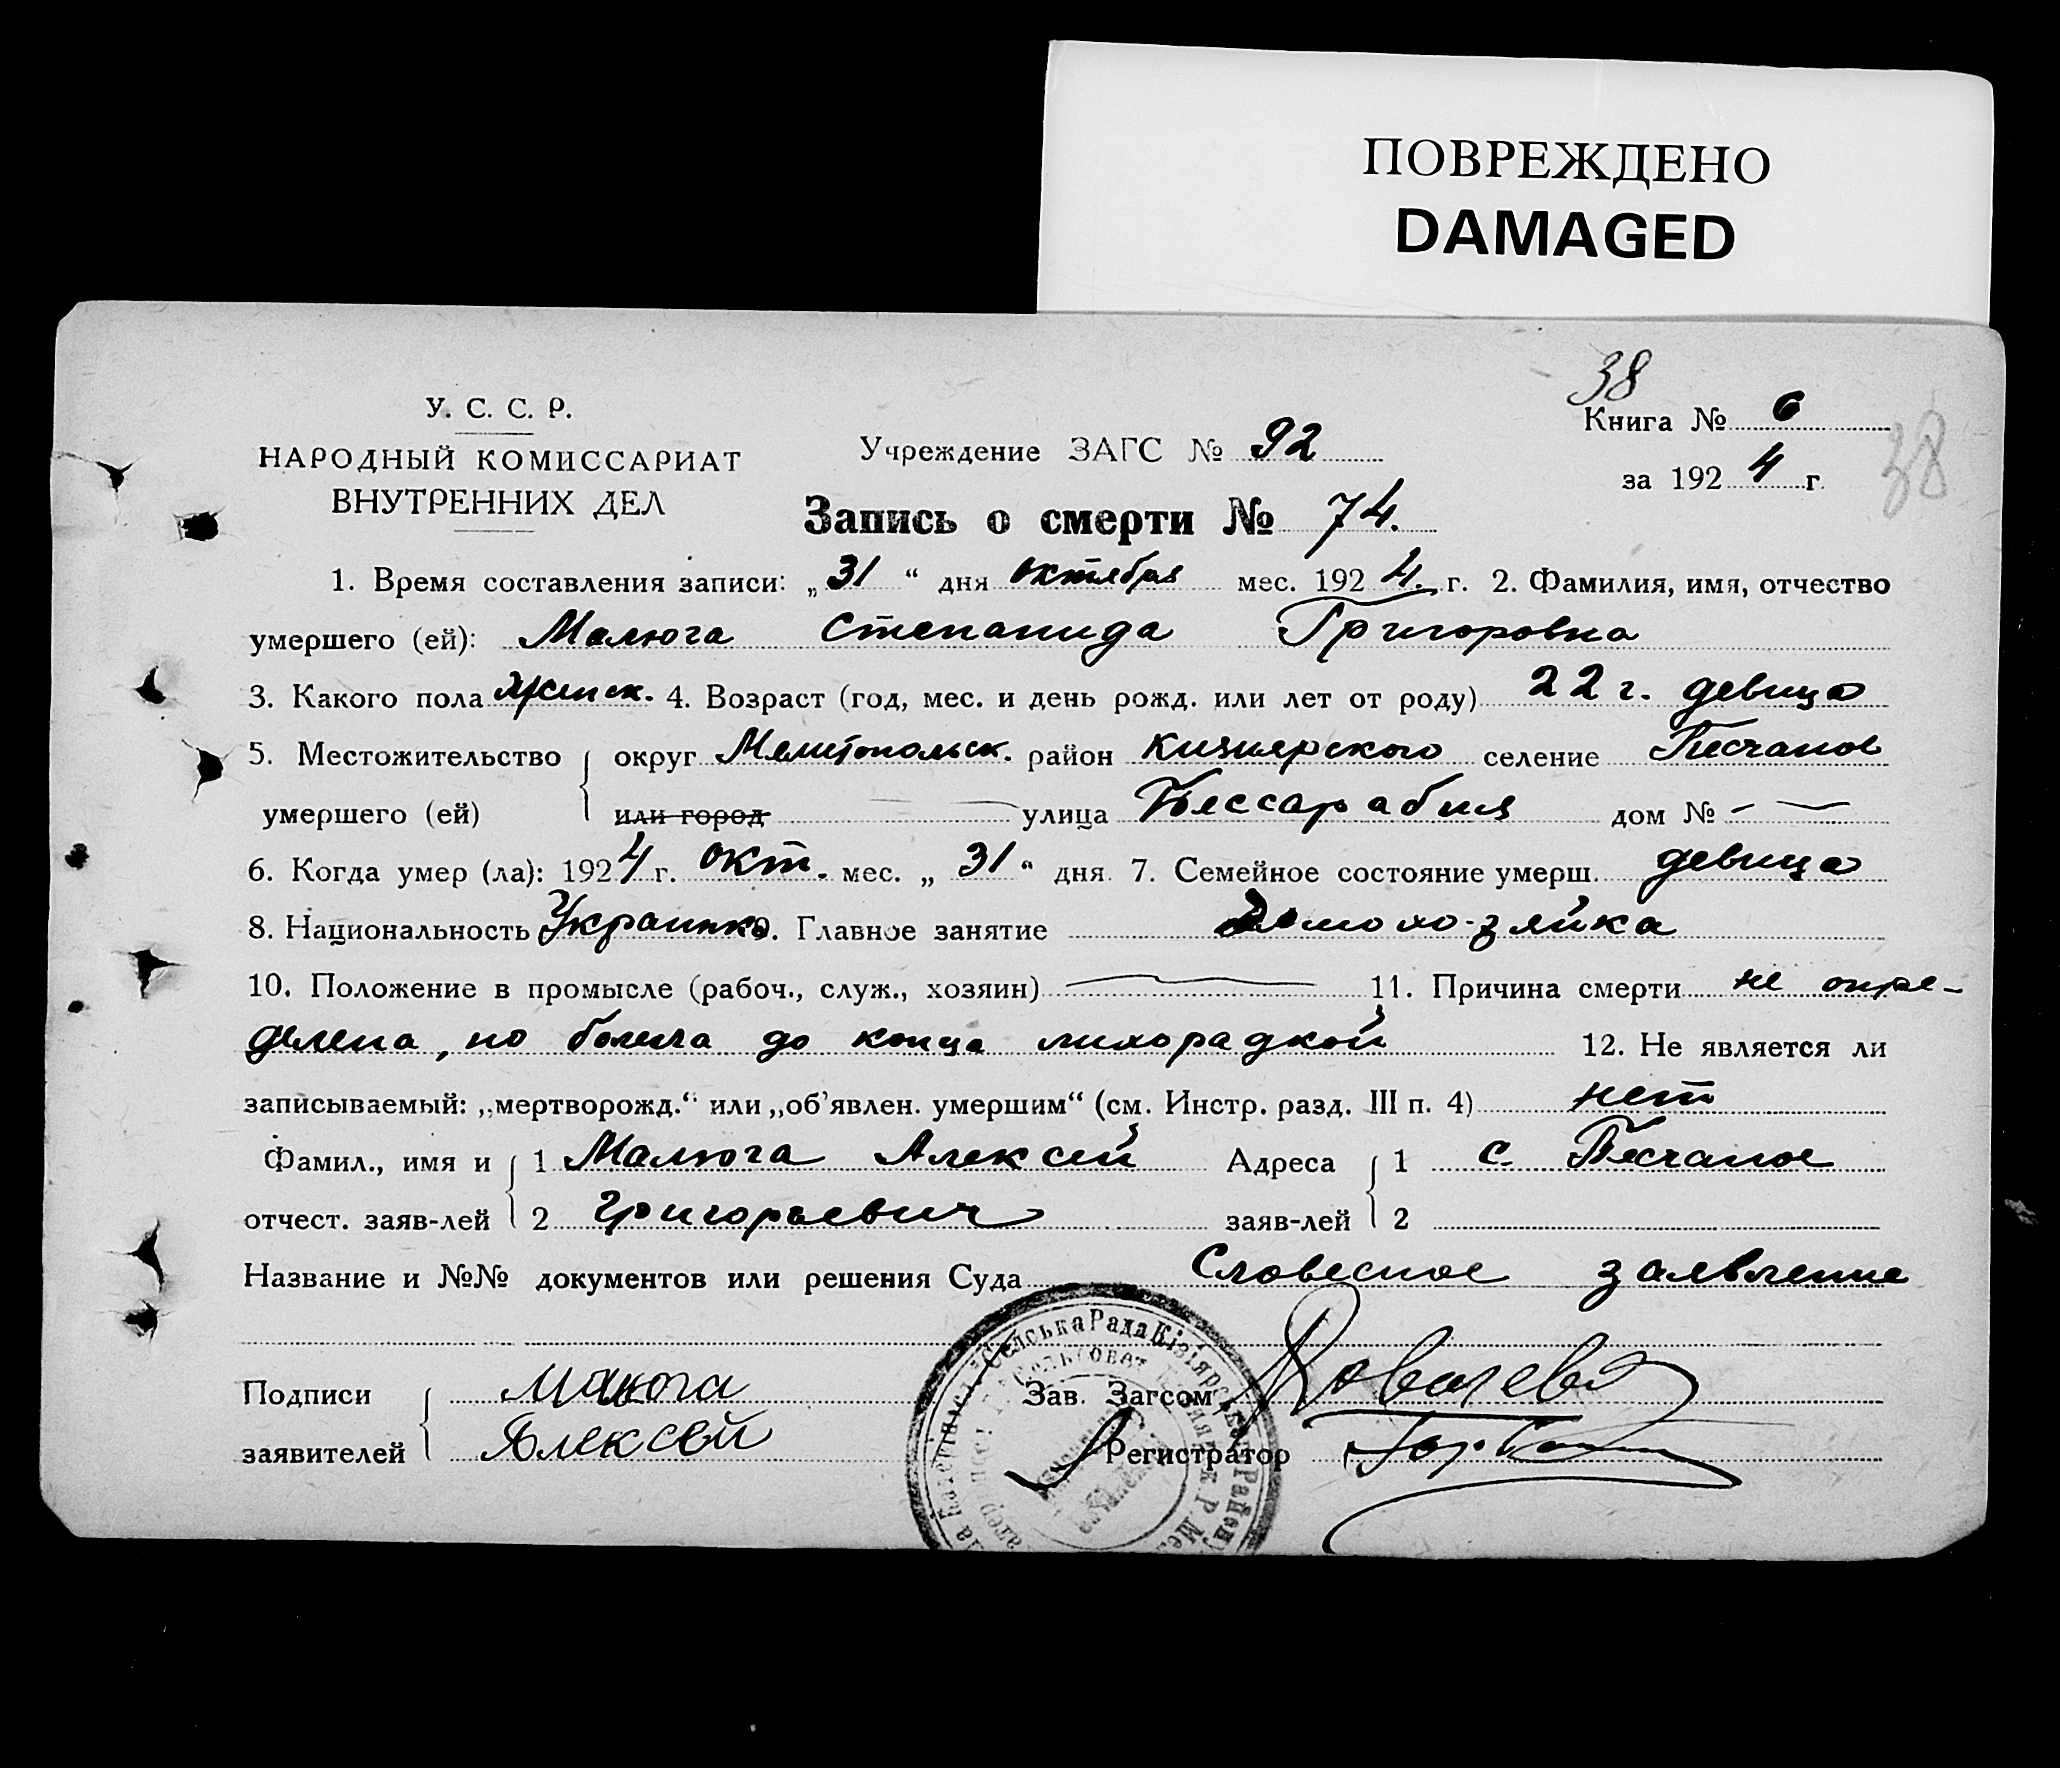 ПОВРЕЖДЕНО
DAMAGED
38
У. С. С. Р.
Книга № 6
38
НАРОДНЫЙ КОМИССАРИАТ
Учреждение ЗАГС № 92
за 1924 г.
ВНУТРЕННИХ ДЕЛ
Запись о смерти № 74.
1. Время составления записи: „31“ дня октября мес. 1924. г. 2. Фамилия, имя, отчество
умершего (ей): Малюга Степанида Григоровна
3. Какого пола женск. 4. Возраст (год, мес. и день рожд. или лет от роду) 22 г. девица
5. Местожительство округ Мелитопольск. район Кизиярского селение Песчаное
умершего (ей) или город улица Бессарабия дом № —
6. Когда умер (ла): 1924 г. окт. мес. „31“ дня 7. Семейное состояние умерш. девица
8. Национальность Украинка 9. Главное занятие Домохо-зяйка
10. Положение в промысле (рабоч., служ., хозяин) — 11. Причина смерти не опре-
делена, но болела до конца лихорадкой 12. Не является ли
записываемый: „мертворожд.“ или „об'явлен. умершим“ (см. Инстр. разд. III п. 4) нет
Фамил., имя и 1 Малюга Алексей Адреса 1 с. Песчаное
отчест. заяв-лей 2 Григорьевич заяв-лей 2
Название и №№ документов или решения Суда Словесное заявление
Сельська Рада Кізіярськ. Району
Подписи Малюга Зав. Загсом Ковалев
заявителей Алексей Регистратор